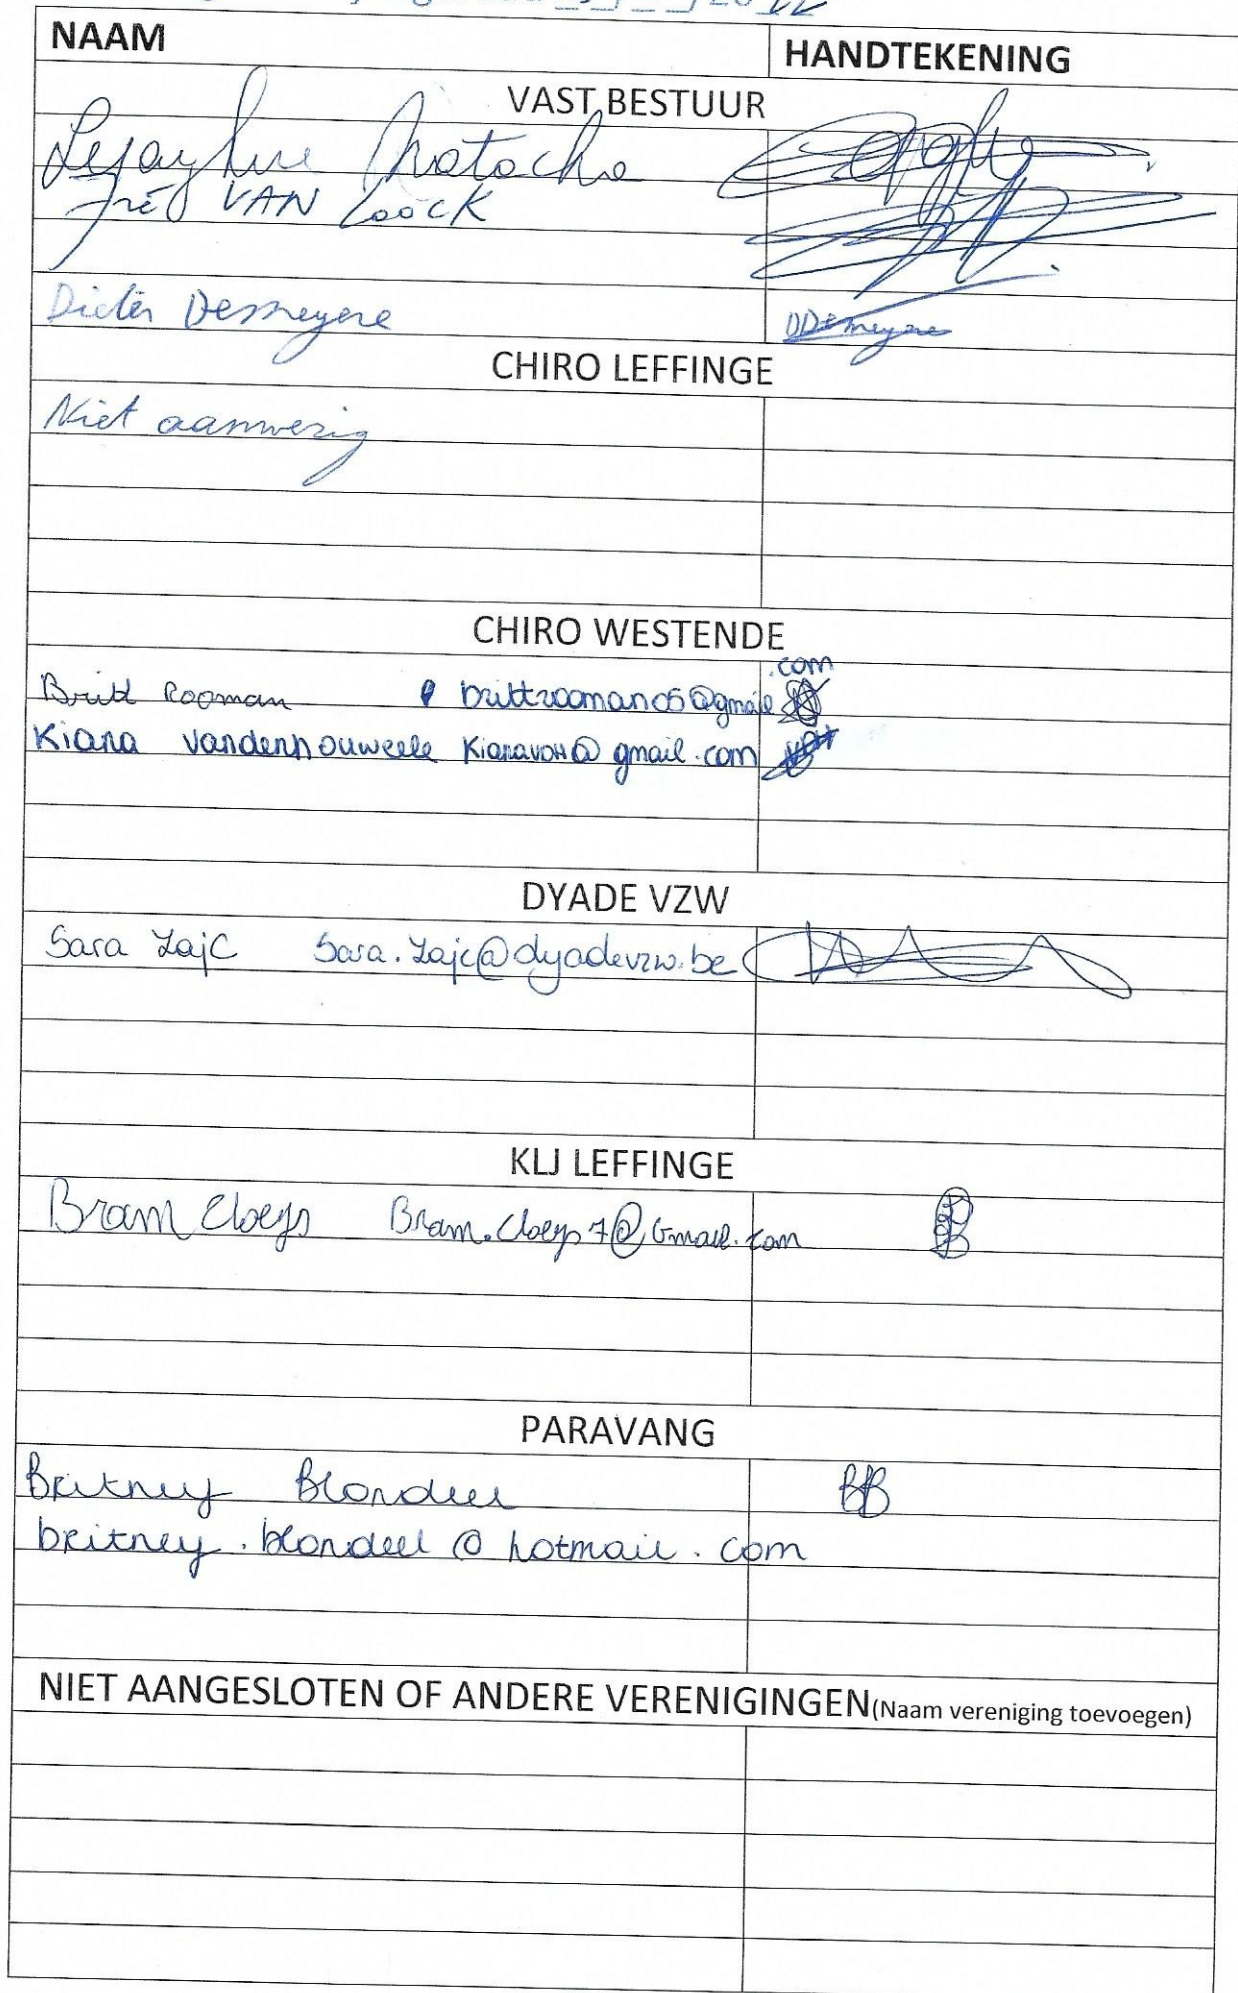 NAAM HANDTEKENING
VAST BESTUUR
Natacha
Fré VAN Loock
Dieter Desmeyere
CHIRO LEFFINGE
Niet aanwezig
CHIRO WESTENDE
.com
Britt Rooman brittrooman05@gmail
Kiana Vandenhouweele Kianavdh@gmail.com
DYADE VZW
Sara Zajc Sara.Zajc@dyadevzw.be
KLJ LEFFINGE
Bram Cloeys Bram.Cloeys7@Gmail.com
PARAVANG
Britney Blondeel BB
britney.blondeel@hotmail.com
NIET AANGESLOTEN OF ANDERE VERENIGINGEN(Naam vereniging toevoegen)